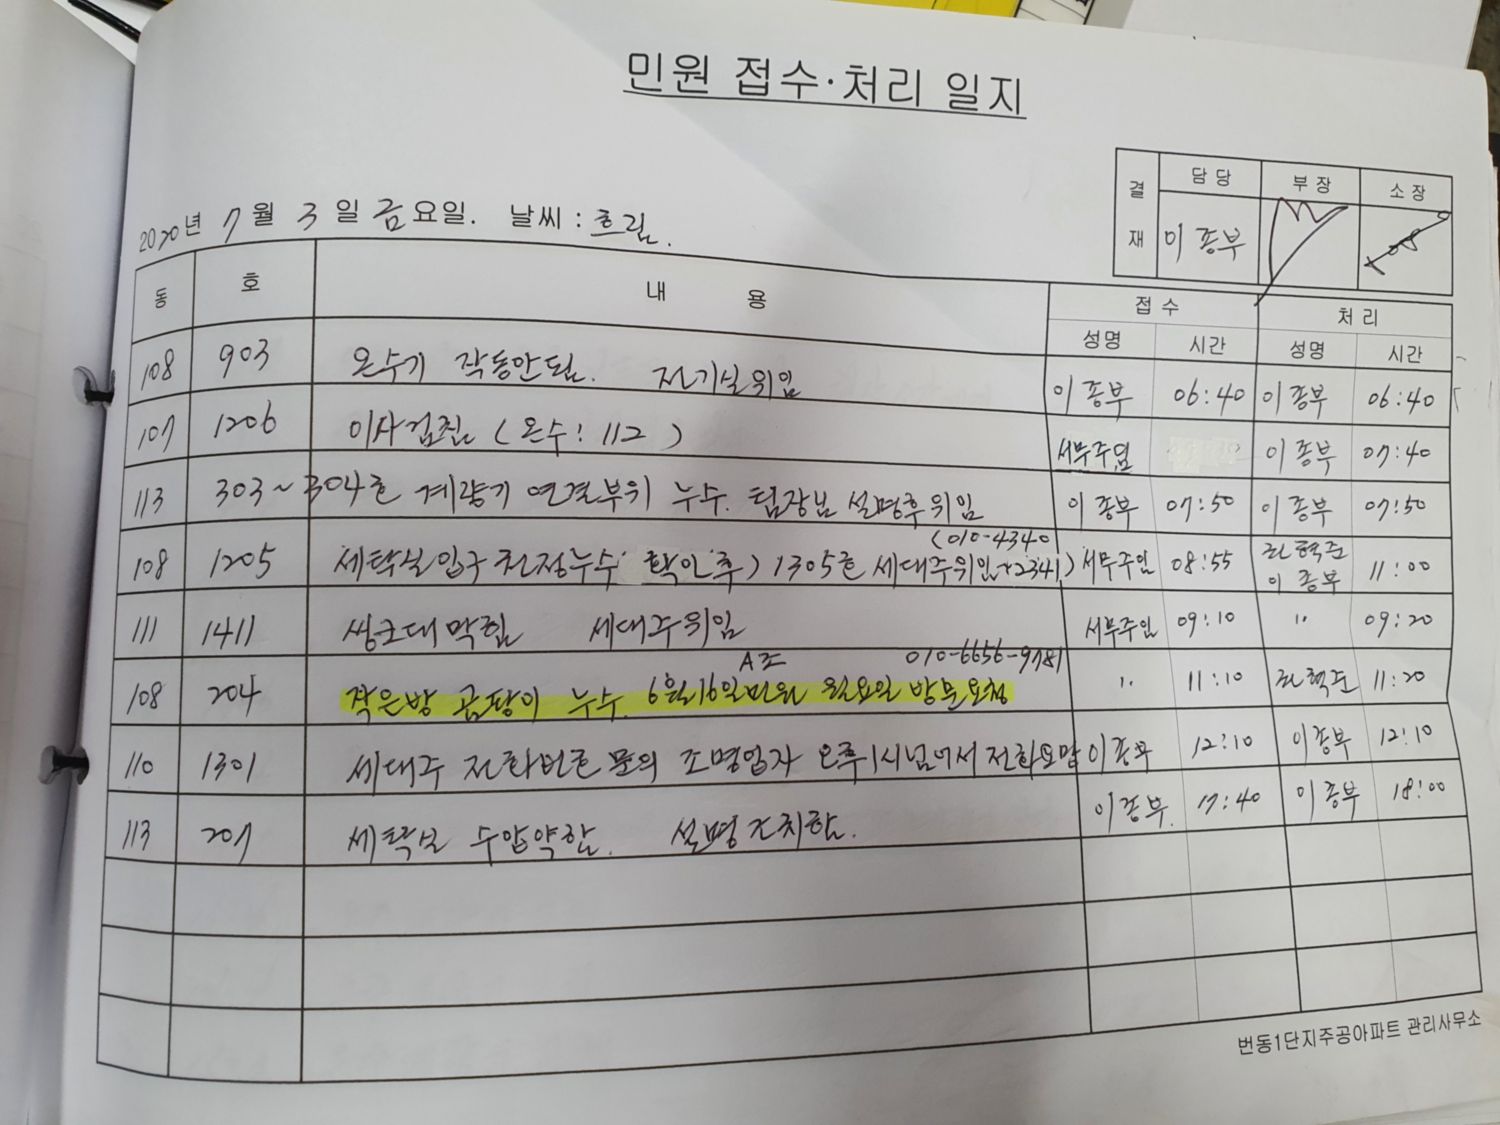 민원 접수·처리 일지
결재 담당 부장 소장
이종부
2020년 7월 3일 금요일. 날씨 : 흐림.
동 호 내 용 접 수 처 리
성명 시간 성명 시간
108 903 온수기 작동안됨. 전기실위임 이종부 06:40 이종부 06:40
107 1206 이사검침 (온수: 112) 서무주임 이종부 07:40
113 303~304호 계량기 연결부위 누수. 팀장님 설명후위임 이종부 07:50 이종부 07:50
(010-4340
108 1205 세탁실입구 천정누수 확인후) 1305호 세대주위임 2341) 서무주임 08:55 최혁준 이종부 11:00
111 1411 씽크대막힘 세대주위임 서무주임 09:10 " 09:20
A조 010-6656-9781
108 204 작은방 곰팡이 누수. 6월16일민원 월요일 방문요청 " 11:10 최혁준 11:20
110 1301 세대주 전화번호 문의 조명업자 오후1시넘어서 전화요망 이종부 12:10 이종부 12:10
113 207 세탁실 수압약함. 설명조치함. 이종부. 17:40 이종부 18:00
번동1단지주공아파트 관리사무소